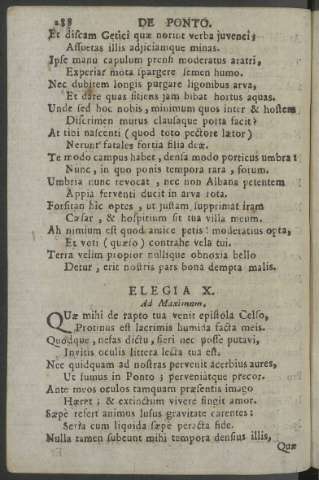 288 DE PONTO.
Et discam Getici quæ norint verba juvenci,
Assuetas illis adjiciamque minas.
Ipse manu capulum prensi moderatus aratri,
Experiar mota spargere semen humo.
Nec dubitem longis purgare ligonibus arva,
Et dare quas sitiens jam bibat hortus aquas.
Unde sed hoc nobis, minimum quos inter & hostem
Discrimen murus clausaque porta facit?
At tibi nascenti (quod toto pectore lætor)
Nerunt fatales fortia fila deæ.
Te modo campus habet, densa modo porticus umbra:
Nunc, in quo ponis tempora rara, forum.
Umbria nunc revocat, nec non Albana petentem
Appia ferventi ducit in arva rota.
Forsitan hic optes, ut justam supprimat iram
Cæsar, & hospitium sit tua villa meum.
Ah nimium est quod amice petis: moderatius opta,
Et voti (quæso) contrahe vela tui.
Terra velim propior nullique obnoxia bello
Detur, erit nostris pars bona dempta malis.
ELEGIA X.
Ad Maximum.
QUæ mihi de rapto tua venit epistola Celso,
Protinus est lacrimis humida facta meis.
Quodque, nefas dictu, fieri nec posse putavi,
Invitis oculis littera lecta tua est.
Nec quidquam ad nostras pervenit acerbius aures,
Ut sumus in Ponto; perveniatque precor.
Ante meos oculos tamquam præsentis imago
Hæret; & extinctum vivere fingit amor.
Sæpè refert animus lusus gravitate carentes:
Seria cum liquida sæpè peracta fide.
Nulla tamen subeunt mihi tempora densius illis,
Quæ